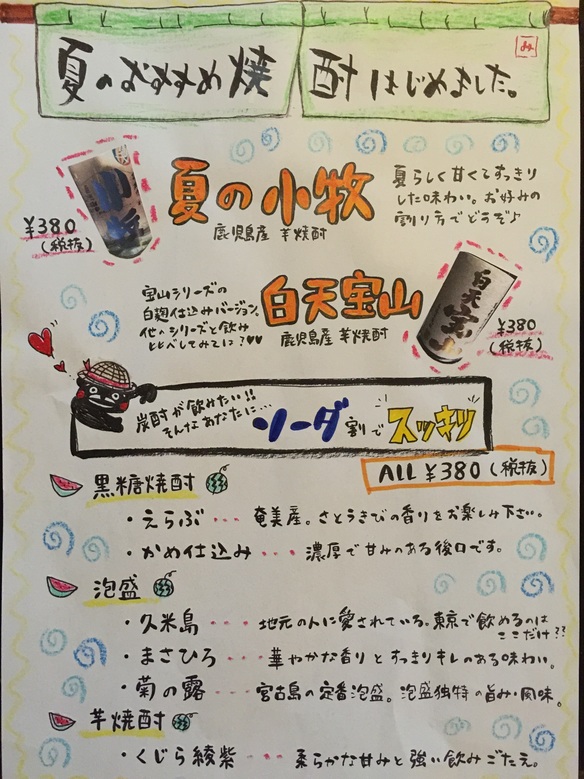 夏のおすすめ焼酎はじめました。
夏の小牧
鹿児島産 芋焼酎
夏らしく甘くてすっきり
した味わい。お好みの
割り方でどうぞ♪
¥380
(税抜)
宝山シリーズの
白麹仕込みバージョン。
他のシリーズと飲み
比べしてみては?♥♥
白天宝山
鹿児島産 芋焼酎
白天宝山
¥380
(税抜)
炭酎が飲みたい!!
そんなあなたに…
ソーダ割でスッキリ
ALL ¥380(税抜)
黒糖焼酎
・えらぶ・・・ 奄美産。さとうきびの香りをお楽しみ下さい。
・かめ仕込み・・・ 濃厚で甘みのある後口です。
泡盛
・久米島・・・ 地元の人に愛されている。東京で飲めるのは
ここだけ??
・まさひろ・・・ 華やかな香りとすっきりキレのある味わい。
・菊の露・・・ 宮古島の定番泡盛。泡盛独特の旨み・風味。
芋焼酎
・くじら綾紫・・・ 柔らかな甘みと強い飲みごたえ。